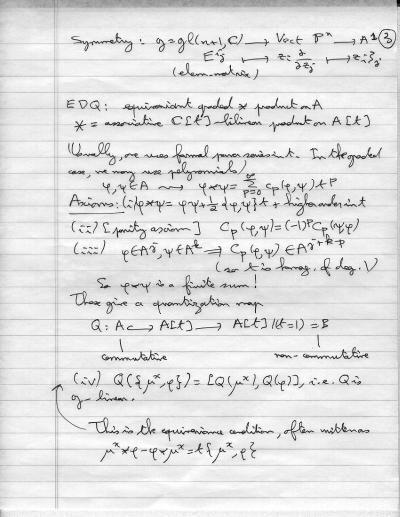 Symmetry: g = gl(n+1, C) → Vect P^n → A^1 (3)
E_ij ↦ z_i ∂/∂z_j ↦ z_i ζ_j
(elem. matrix)
EDQ: equivariant graded * product on A
* = associative C[t]-bilinear product on A[t]
Usually, one uses formal power series in t. In the graded
case, we may use polynomials!
φ, ψ ∈ A ⇝ φ*ψ = Σ_{p=0}^∞ C_p(φ,ψ) t^p
Axioms: (i) φ*ψ = φψ + 1/2 {φ,ψ} t + higher order in t
(ii) [parity axiom] C_p(φ,ψ) = (-1)^p C_p(ψ,φ)
(iii) φ ∈ A^j, ψ ∈ A^k ⇒ C_p(φ,ψ) ∈ A^{j+k-p}
(so t is homog. of deg. 1)
So φ*ψ is a finite sum!
These give a quantization map
Q: A ↪ A[t] → A[t]/(t=1) = B
commutative non-commutative
(iv) Q({μ^x, φ}) = [Q(μ^x), Q(φ)], i.e. Q is
g-linear.
This is the equivariance condition, often written as
μ^x * φ - φ * μ^x = t{μ^x, φ}